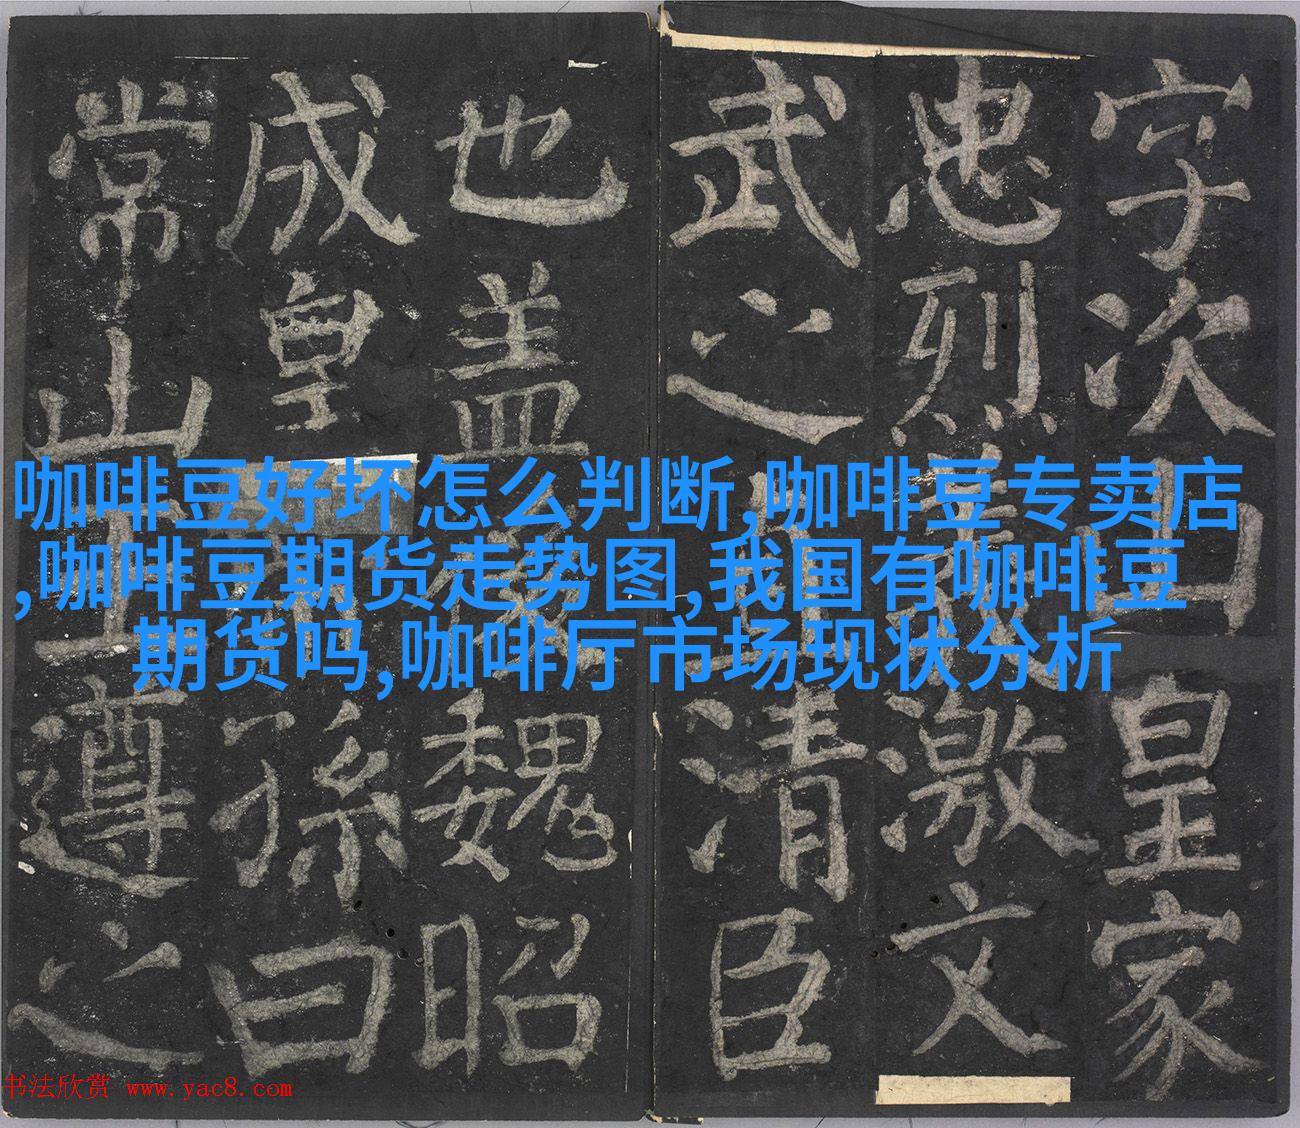 字次山皇家
忠烈義激文
武之清臣
也盖後魏昭
成皇孫曰
常山王遵之
咖啡豆好坏怎么判断,咖啡豆专卖店
,咖啡豆期货走势图,我国有咖啡豆
期货吗,咖啡厅市场现状分析
书法欣赏 www.yac8.com